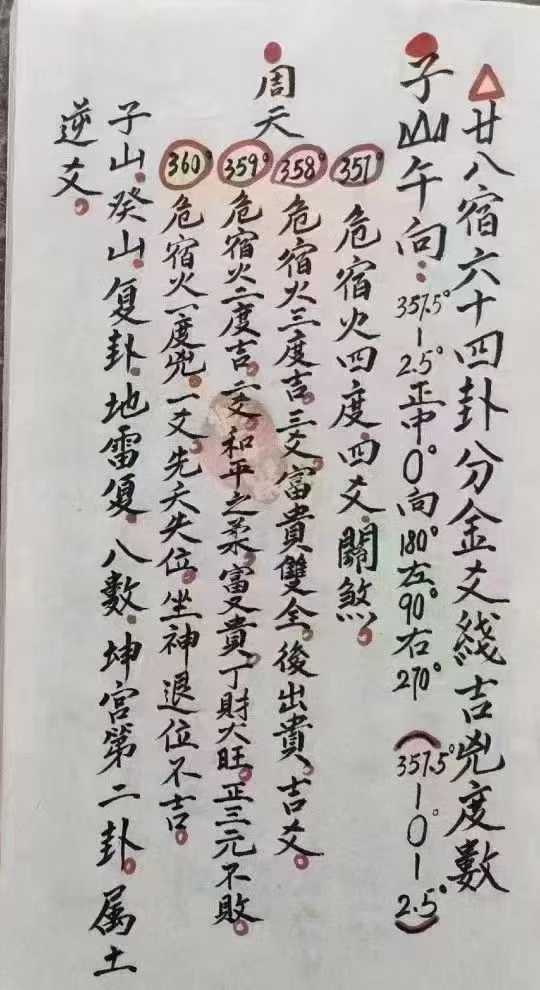 廿八宿六十四卦分金爻綫吉兇度數
子山午向:357.5°-2.5°正中0°向180°左90°右270°(357.5°-0°-2.5°)
周天
357°危宿火四度.四爻.關煞。
358°危宿火三度吉.三爻富貴雙全.後出貴.吉爻。
359°危宿火二度吉.二爻.和平之柔.富又貴.丁財大旺.正三元不敗。
360°危宿火一度兇.一爻.先天失位.坐神退位不吉。
子山.癸山.复卦.地雷复.八數.坤宮第二卦.属土
逆爻。